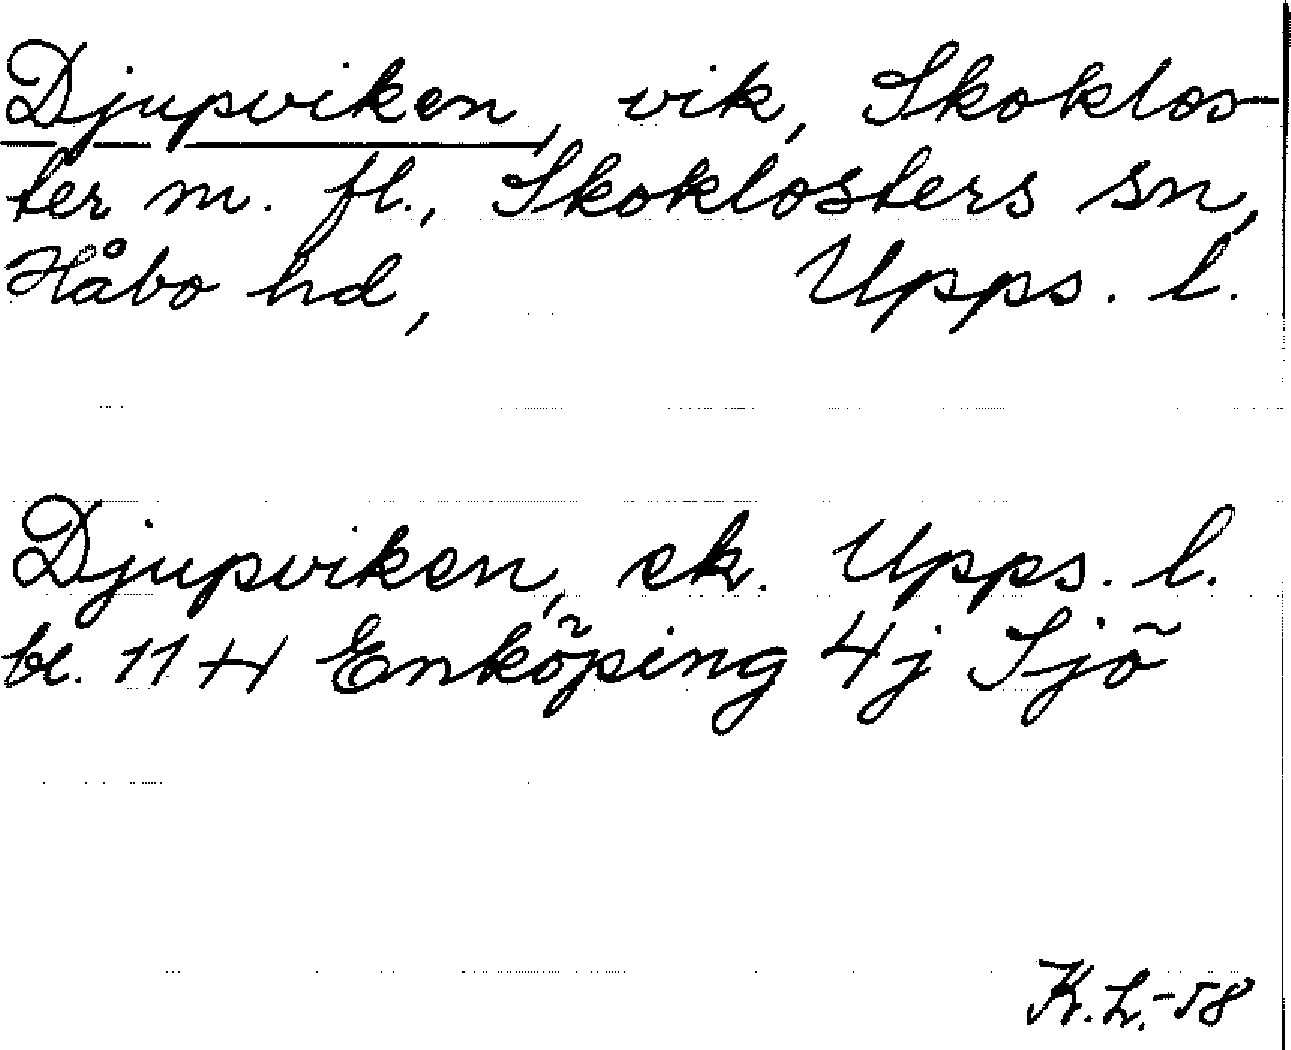 Djupviken, vik, Skoklos-
ter m. fl., Skoklosters sn,
Håbo hd, Upps. l.
Djupviken, ek. Upps. l.
bl. 11 Enköping 4j Sjö
K.L.-58